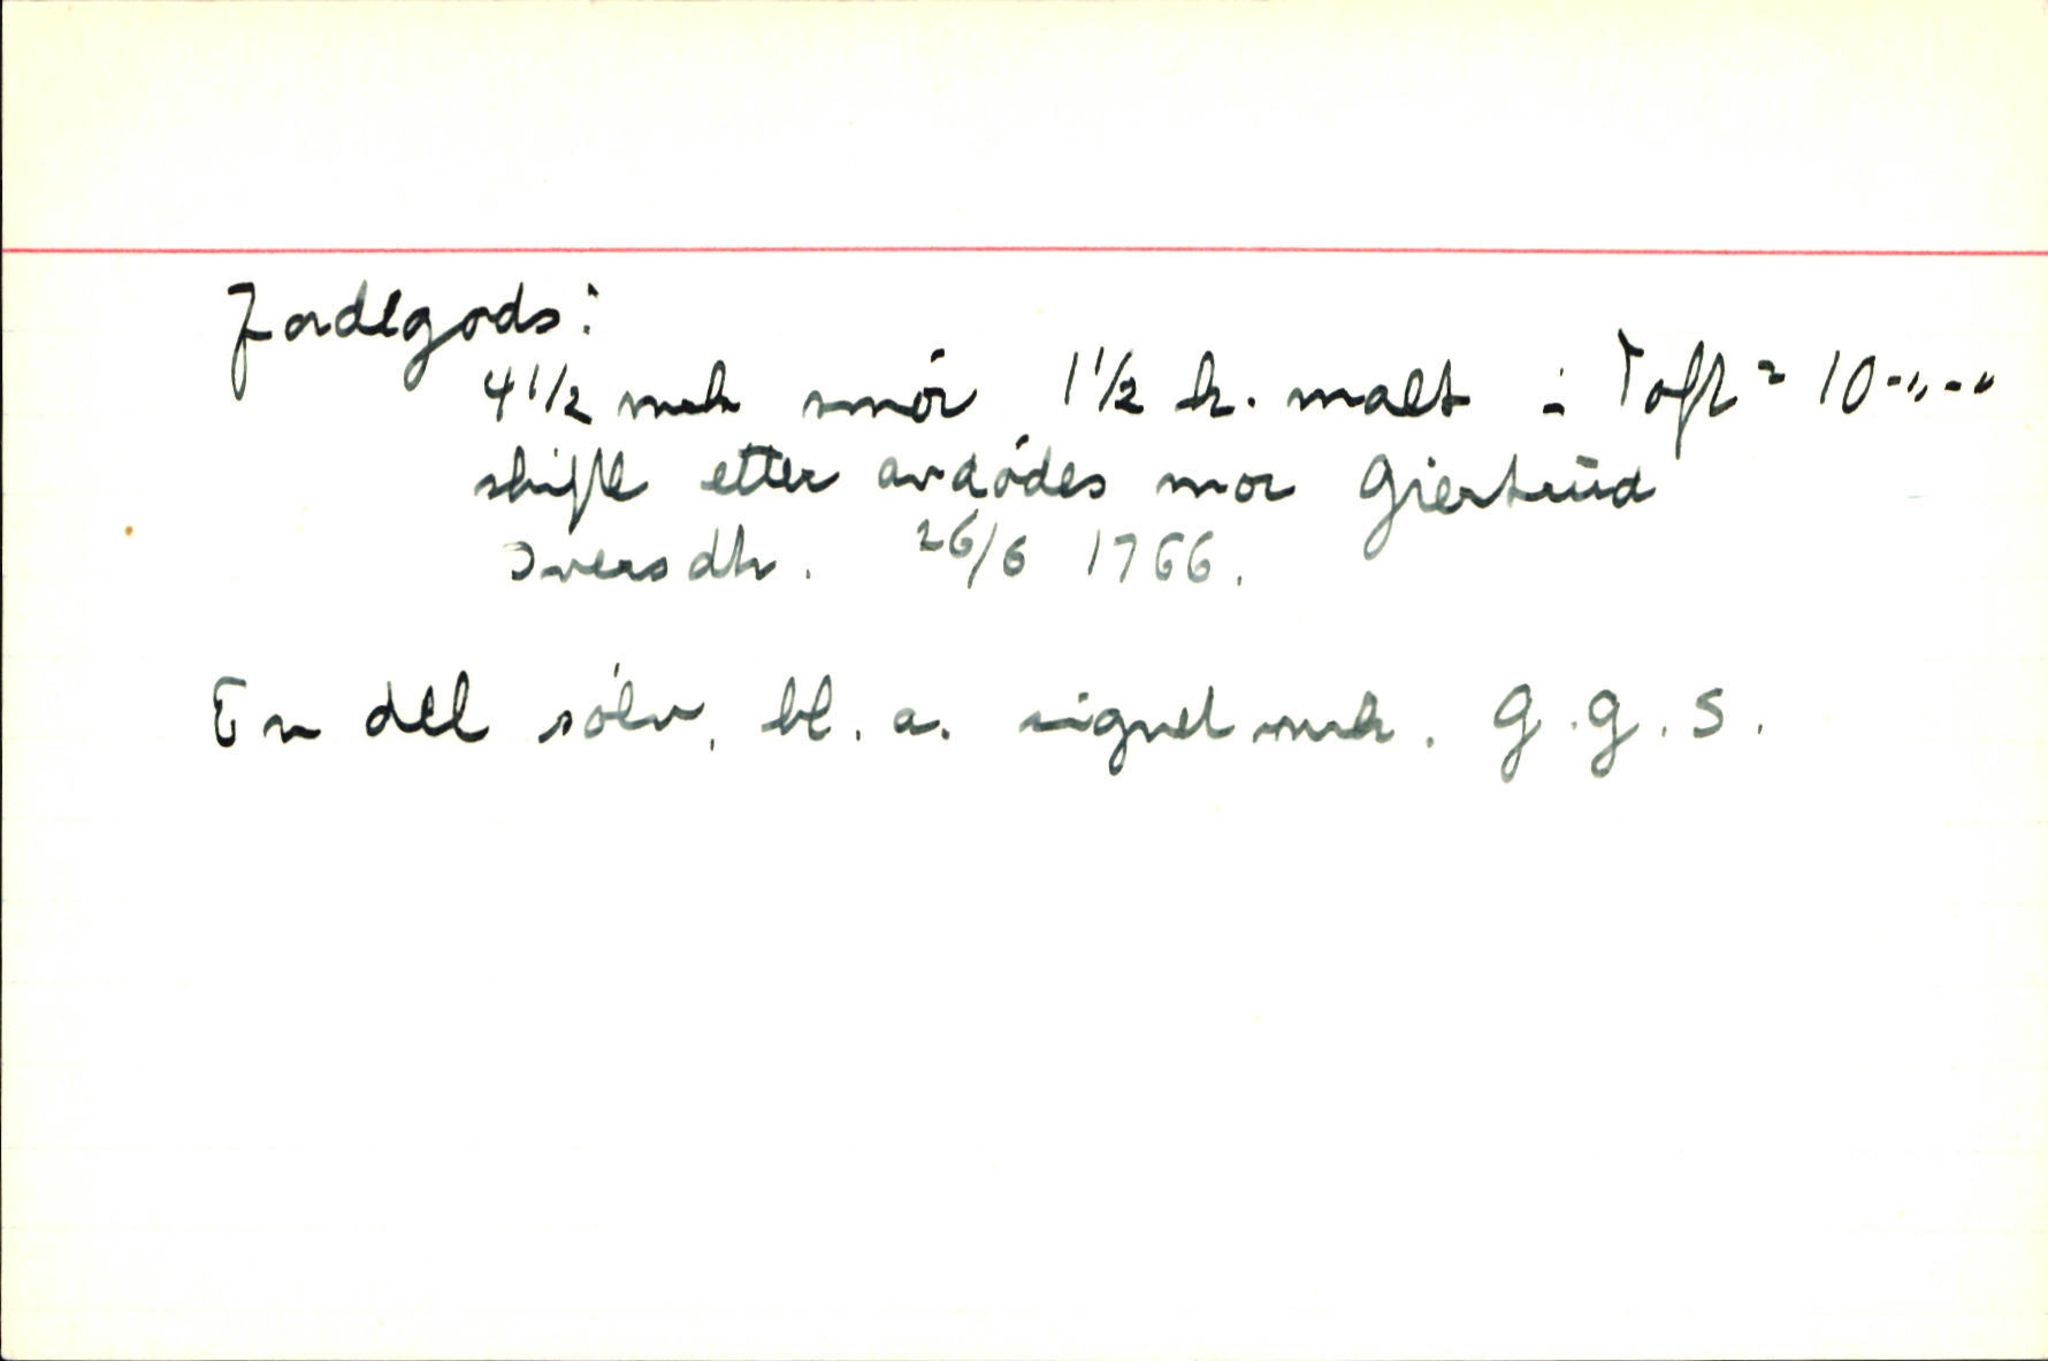 Jordegods:
4 1/2 mrk smör 1 1/2 h. malt i Toft = 10-"-"
skifte etter avdödes mor Giertrüd
Iversdtr. 26/6 1766.
En del sölv, bl. a. signet mrk. G. G. S.